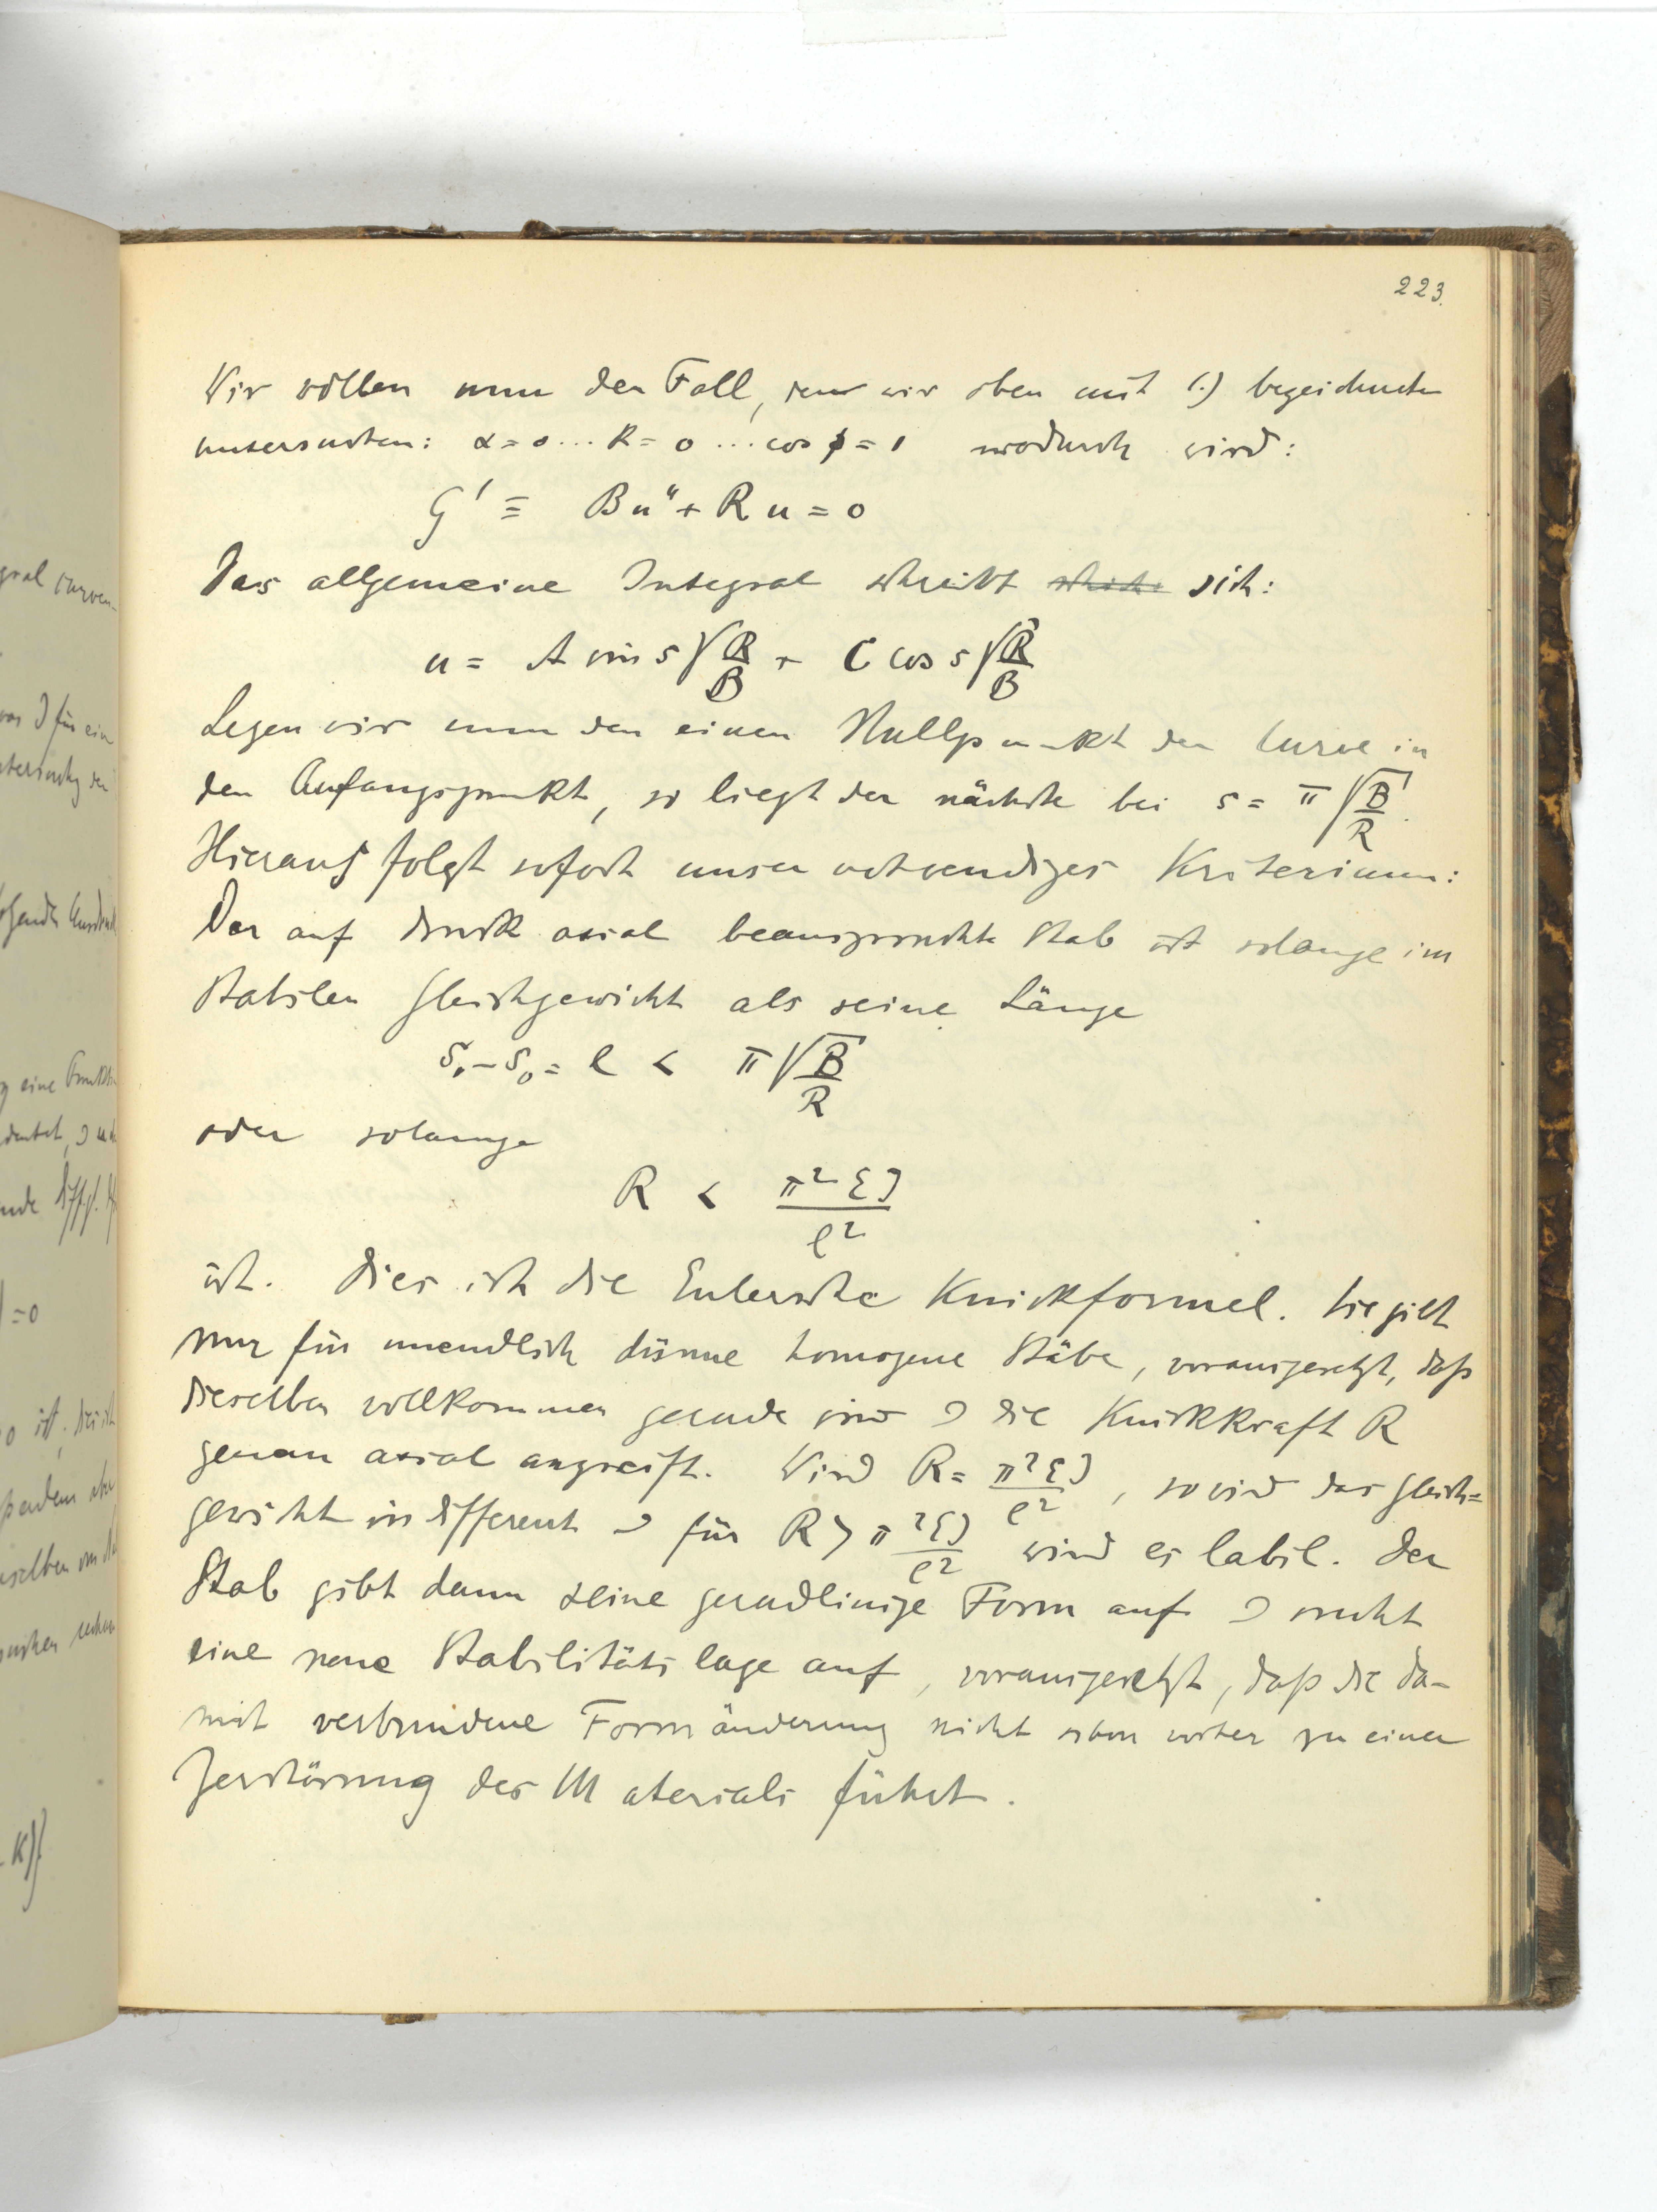 223.
Wir wollen nun den Fall, den wir oben mit 1.) bezeichneten
untersuchen: α = 0 ... k = 0 ... cos ϕ = 1 wodurch wird:
G' ≡ Bu'' + Ru = 0
Das allgemeine Integral schreibt sich:
u = A sin s √R/B + C cos s √R/B
Legen wir nun den einen Nullpunkt der Curve in
den Anfangspunkt, so liegt der nächste bei s = π √B/R.
Hieraus folgt sofort unser notwendiges Kriterium:
Der auf Druck axial beanspruchte Stab ist solange im
stabilen Gleichgewicht als seine Länge
s₁ - s₀ = l < π √B/R
oder solange
R < π² EJ / l²
ist. Dies ist die Eulersche Knickformel. Sie gilt
nur für unendlich dünne homogene Stäbe, vorausgesetzt, daß
dieselben vollkommen gerade sind & die Knickkraft R
genau axial angreift. Wird R = π² EJ / l², so wird das Gleich=
gewicht indifferent & für R > π² EJ / l² wird es labil. Der
Stab gibt dann seine geradlinige Form auf & sucht
eine neue Stabilitätslage auf, vorausgesetzt, daß die da-
mit verbundene Formänderung nicht schon vorher zu einer
Zerstörung des Materials führt.
gral
für ein
=0
ist
K)}